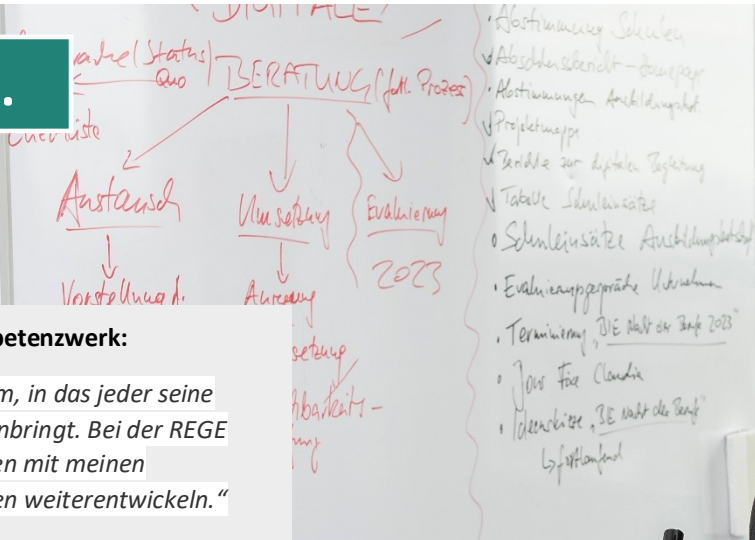 (DIGITALE)
(Status
Quo
BERATUNG (fortl. Prozess)
Austausch
Umsetzung
Evaluierung
2023
Vorstellung d.
setzung
barkeits-
• Abstimmung Schulen
Abschlussbericht - Homepage
• Abstimmungen Ausbildungsbot
Projektmappe
Berichte zur digitalen Begleitung
Tabelle Schuleinsätze
• Schuleinsätze
• Evaluierungsgespräche Unternehmen
• Terminierung „BIE Nacht der Berufe 2023"
• Jour Fixe Claudia
• Ideenskizze „BIE Nacht der Berufe"
↳ fortlaufend
.
petenzwerk:
m, in das jeder seine
nbringt. Bei der REGE
en mit meinen
en weiterentwickeln.“